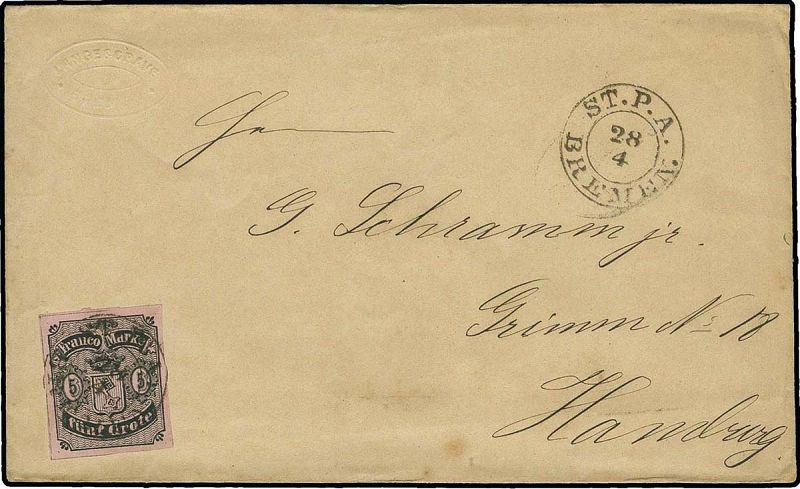 LANGE & GRAVE
ST. P. A.
28
4
BREMEN.
Herrn
G. Schramm jr.
Grimm No 18
Hamburg.
Franco Marke
5 5
Fünf Grote